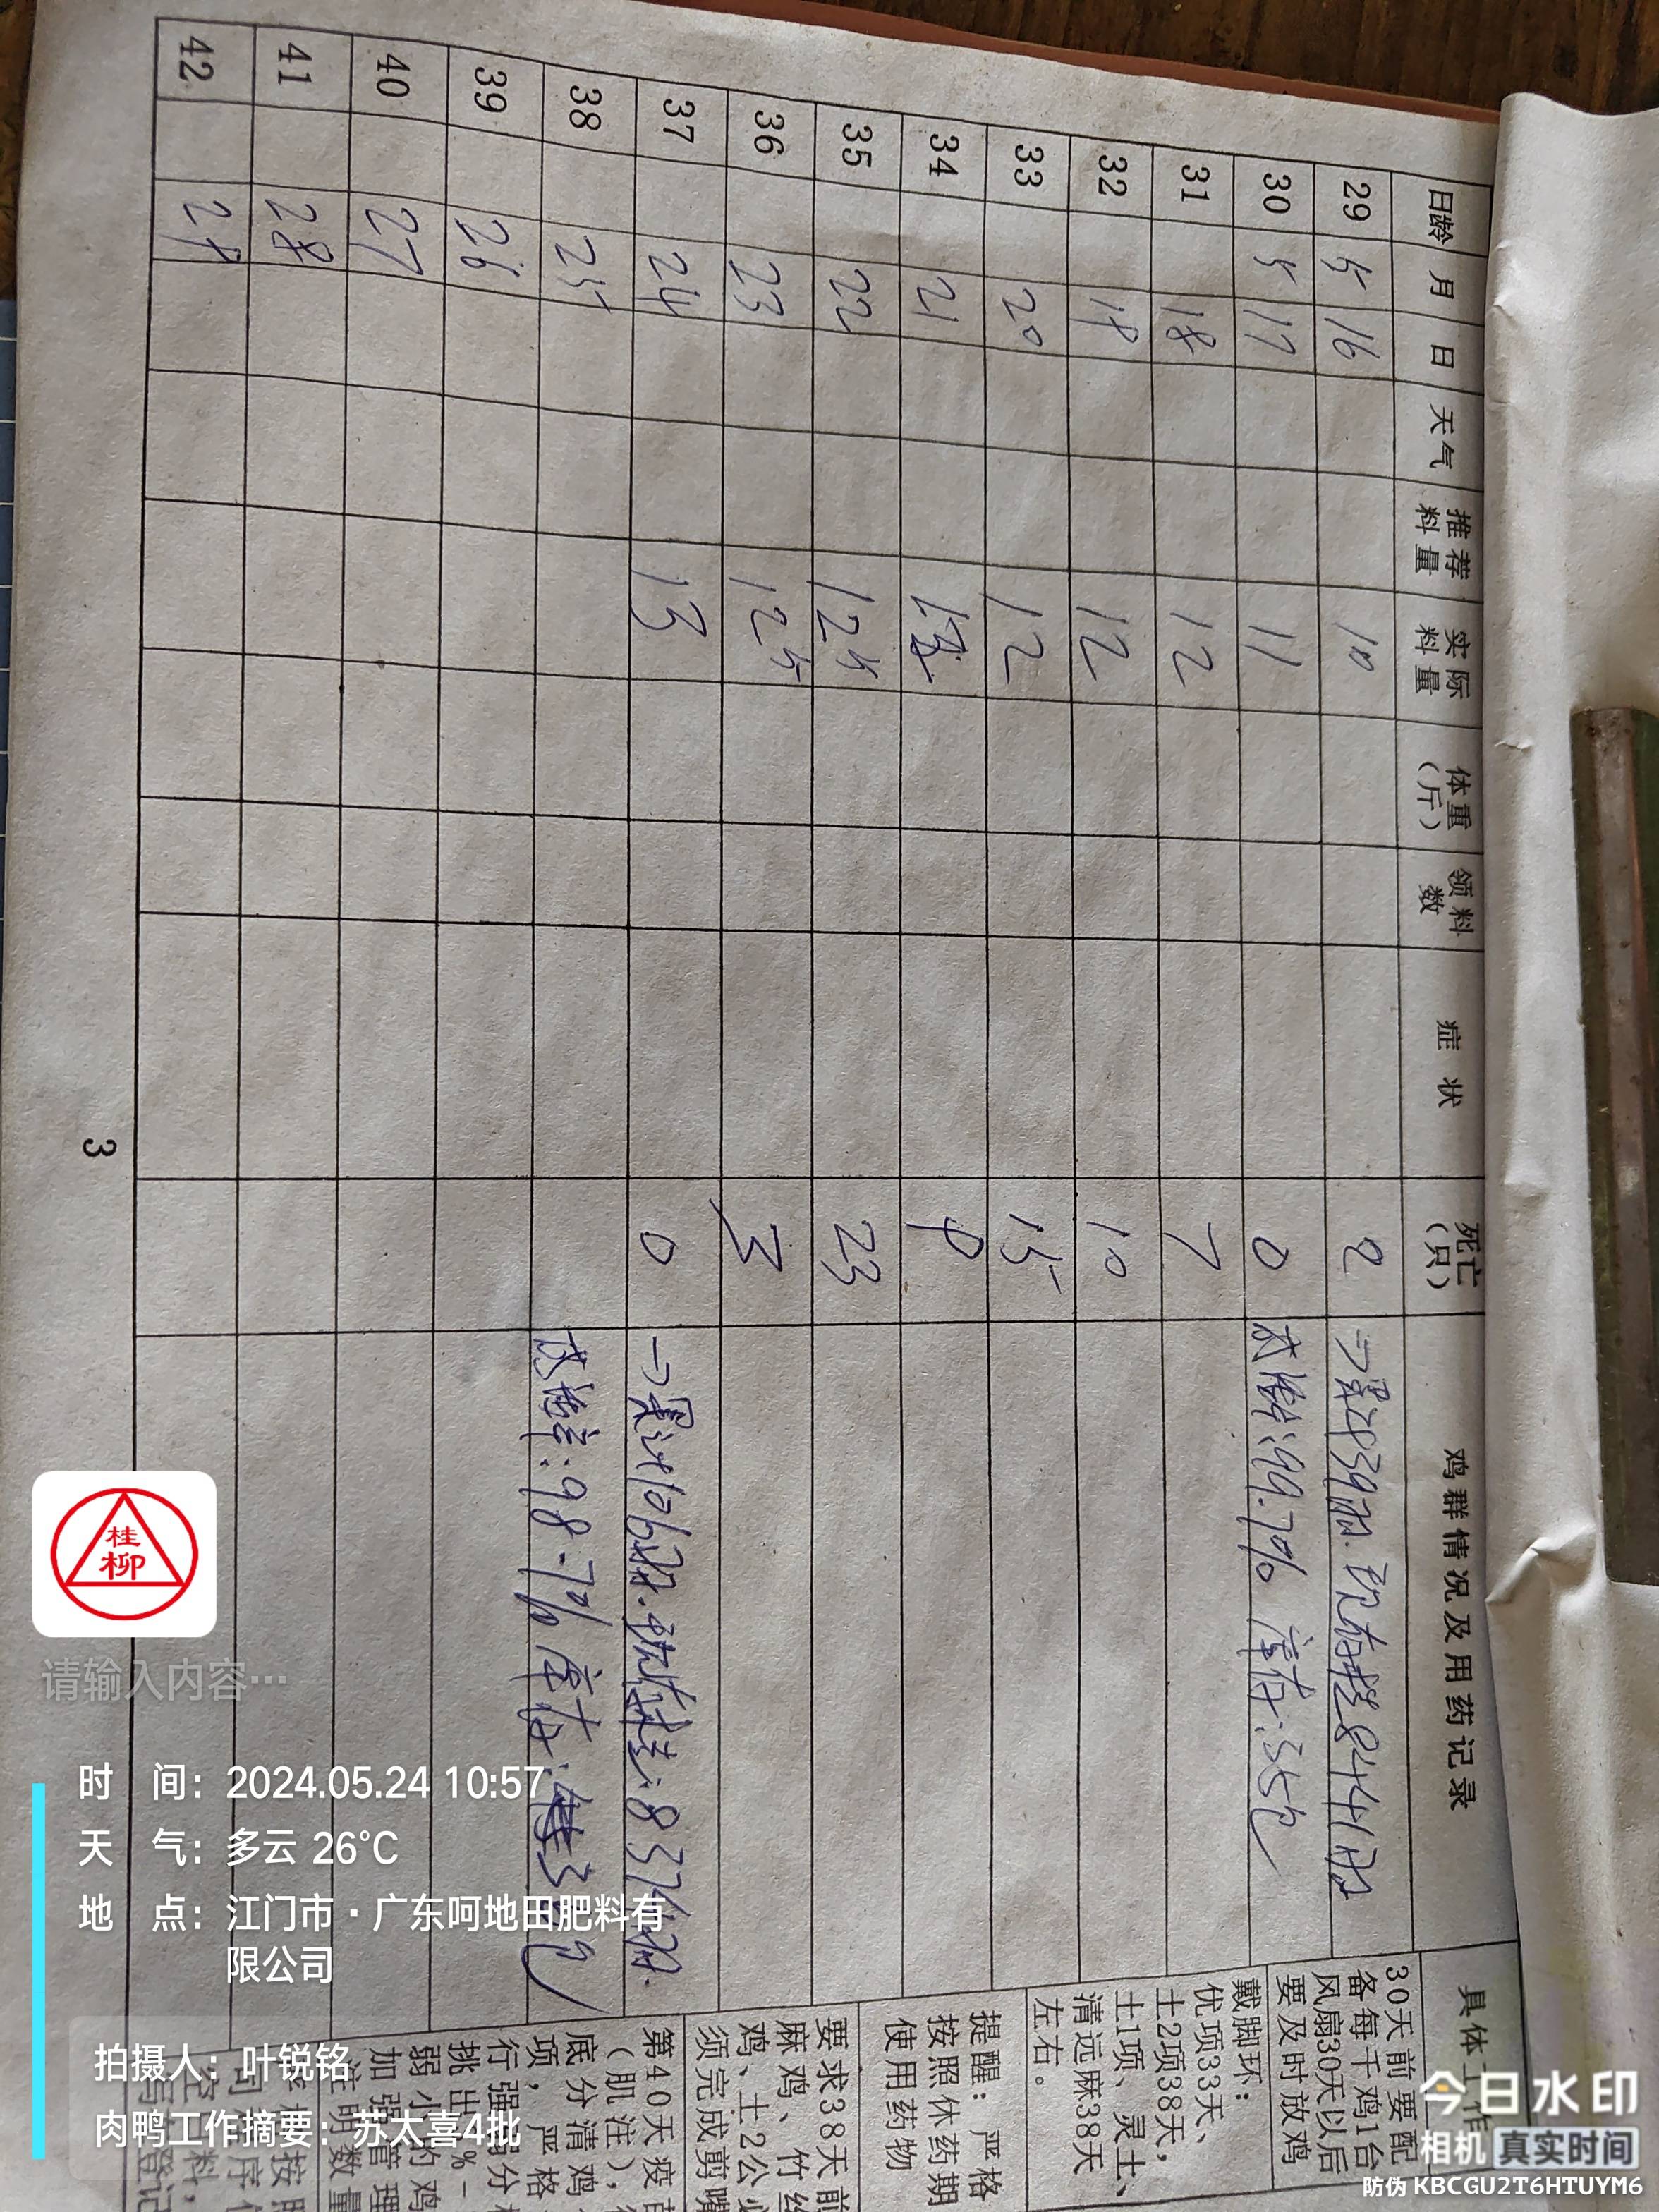 日龄 月 日 天气 推荐料量 实际料量 体重(斤) 领料数 症状 死亡(只) 鸡群情况及用药记录 具体工作
29 5 16 10 2
30 5 17 11 0 成活率:99.7% 库存:35包
31 18 12 7
32 19 12 10
33 20 12 15
34 21 9
35 22 12.5 23
36 23 12.5 3
37 24 13 0 →累计106羽.现存栏:8374羽.
38 25 98.7% 库存:
39 26
40 27
41 28
42 29
30天前要配
备每千鸡1台
风扇30天以后
要及时放鸡
戴脚环:
优项33天、
土2项38天,
土1项、灵土、
清远麻38天
左右。
提醒: 严格
按照休药期
使用药物
要求38天前
麻鸡、竹丝
鸡、土2公必
须完成剪嘴
第40天疫苗
(肌注),
底分清鸡
项,严格
行强弱分
挑出 %-
弱小的鸡
加强管理
注明数量
3
桂柳
请输入内容…
时 间: 2024.05.24 10:57
天 气: 多云 26℃
地 点: 江门市·广东呵地田肥料有
限公司
拍摄人: 叶锐铭
肉鸭工作摘要: 苏太喜4批
今日水印
相机 真实时间
防伪 KBCGU2T6HTUYM6